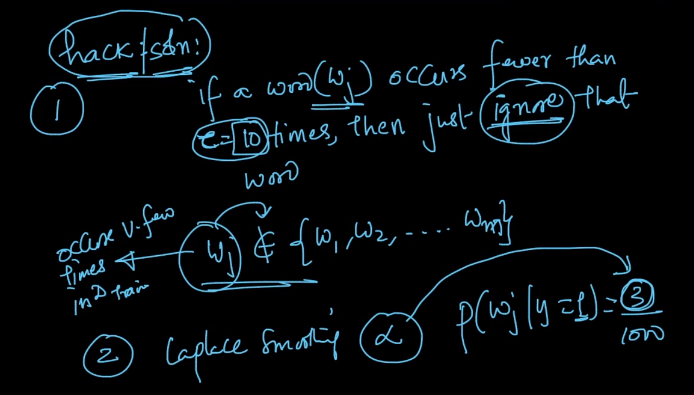 hack/soln:
①
if a word (wj) occurs fewer than
c=10 times, then just ignore that
word
occur v. few
times
in D train
wj ∉ {w1, w2, ..... wm}
② Laplace Smoothing α
P(wj | y=1) = 3/1000